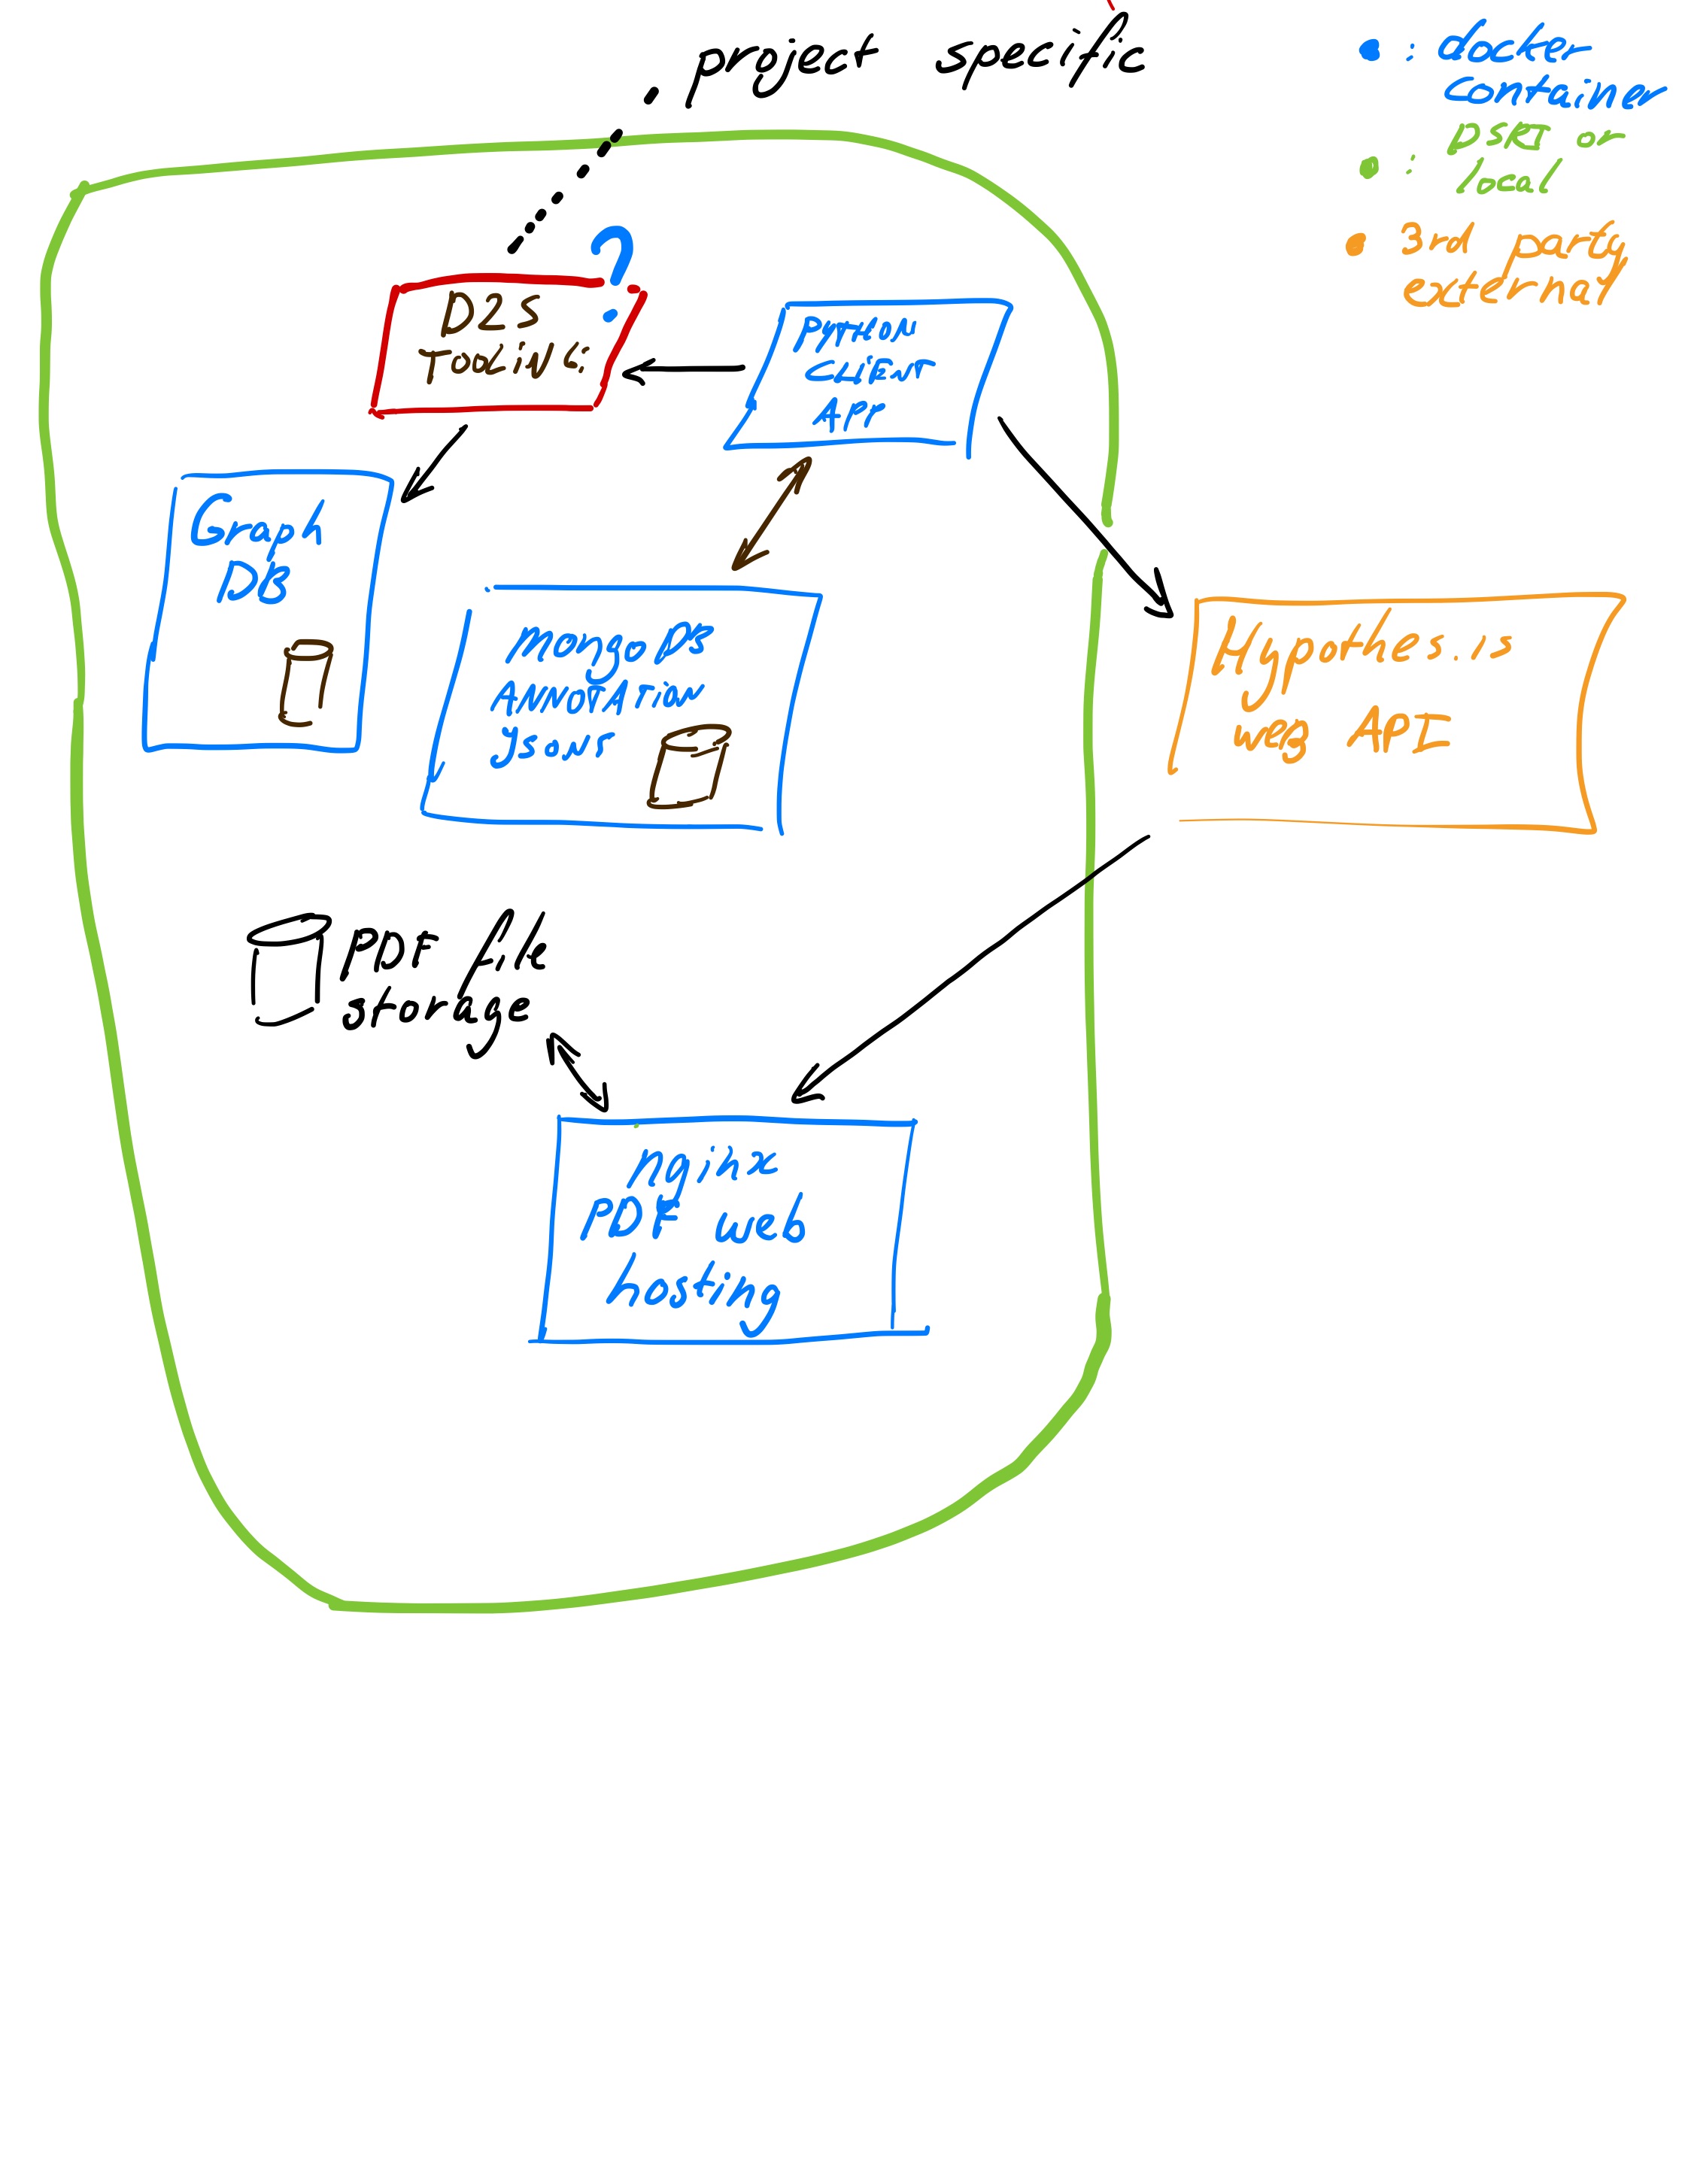 project specific
: docker
container
: DSRI or
local
3rd party
external
?
D2S
TOOLING
PYTHON
CLIENT
APP
Graph
DB
MongoDB
ANNOTATION
JSONS
Hypothes.is
WEB API
PDF file
storage
nginx
PDF web
hosting